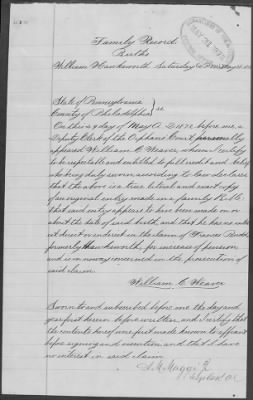 Family Record
Births
William Hawksworth Saturday
State of Pennsylvania
County of Philadelphia } ss
On this 9 day of May A.D. 1872 before me, a
Deputy Clerk of the Orphans Court personally
appeared William C. Weaver, whom I certify
to be reputable and entitled to full credit and belief
who being duly sworn according to law declares
that the above is a true literal and exact copy
of an original entry made in a family Bible
that said entry appears to have been made on or
about the date of said birth and that he has no
interest direct or indirect in the claim of Frances
formerly Hawksworth, for increase of pension
and is in no way concerned in the prosecution of
said claim.
William C. Weaver
Sworn to and subscribed before me the day and
year first herein before written, and I certify that
the contents hereof were first made known to affiant
before signing and execution and that I have
no interest in said claim